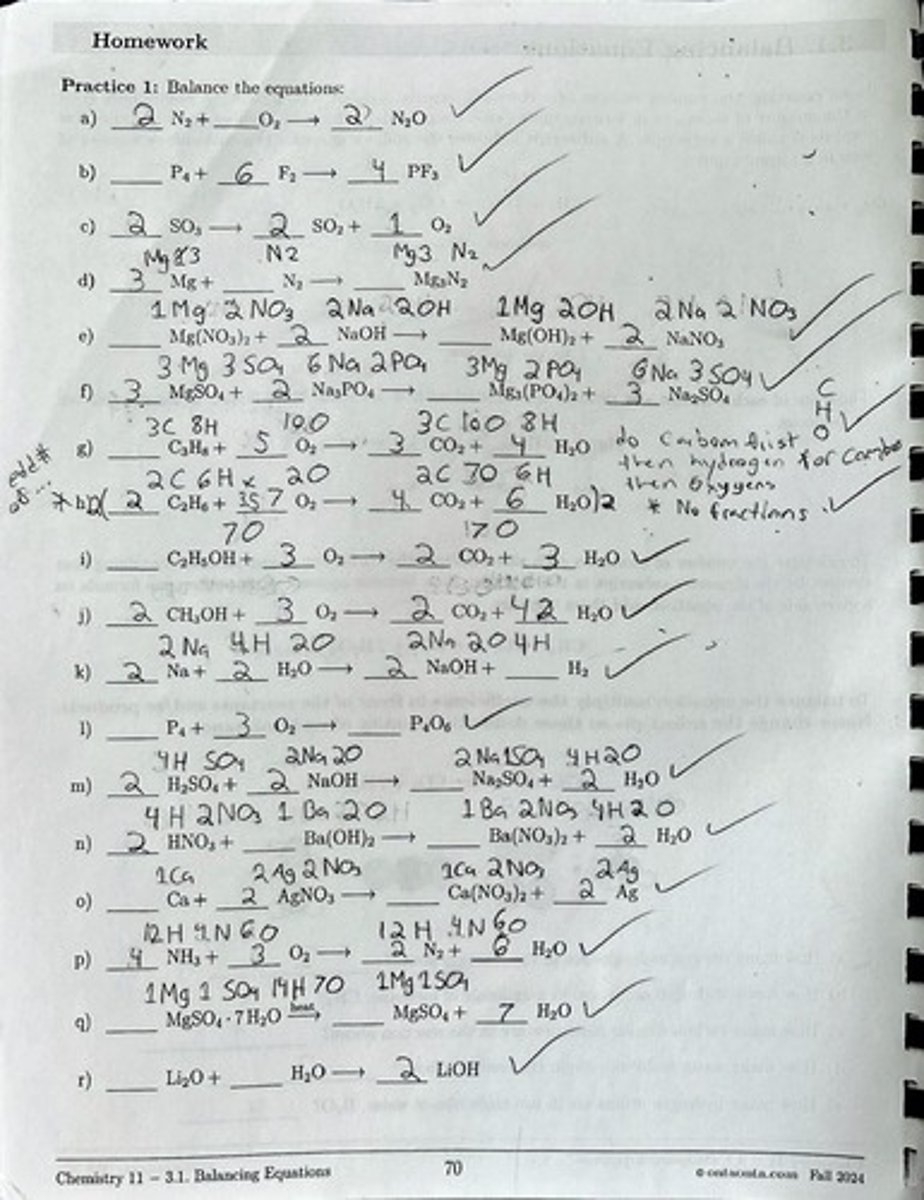 Homework
Practice 1: Balance the equations:
a) 2 N₂ + ___ O₂ ⟶ 2 N₂O
b) ___ P₄ + 6 F₂ ⟶ 4 PF₃
c) 2 SO₃ ⟶ 2 SO₂ + 1 O₂
N2 Mg3 N₂
d) 3 Mg + ___ N₂ ⟶ ___ Mg₃N₂
1Mg 2NO₃ 2Na 2OH 1Mg 2OH 2Na 2NO₃
e) ___ Mg(NO₃)₂ + 2 NaOH ⟶ ___ Mg(OH)₂ + 2 NaNO₃
3Mg 3SO₄ 6Na 2PO₄ 3Mg 2PO₄ 6Na 3SO4
f) 3 MgSO₄ + 2 Na₃PO₄ ⟶ ___ Mg₃(PO₄)₂ + 3 Na₂SO₄
C
H
O
3C 8H 10O 3C 10O 8H
g) ___ C₃H₈ + 5 O₂ ⟶ 3 CO₂ + 4 H₂O
do Carbon first
then hydrogen for
then Oxygens
* No fractions
odd #
2C 6H 2O 2C 7O 6H
* h) 2( 2 C₂H₆ + 3.5 7 O₂ ⟶ 4 CO₂ + 6 H₂O)2
7O 7O
i) ___ C₂H₅OH + 3 O₂ ⟶ 2 CO₂ + 3 H₂O
j) 2 CH₃OH + 3 O₂ ⟶ 2 CO₂ + 4 2 H₂O
2Na 4H 2O 2Na 2O 4H
k) 2 Na + 2 H₂O ⟶ 2 NaOH + ___ H₂
l) ___ P₄ + 3 O₂ ⟶ ___ P₄O₆
4H SO₄ 2Na 2O 2Na 1SO₄ 4H 2O
m) 2 H₂SO₄ + 2 NaOH ⟶ ___ Na₂SO₄ + 2 H₂O
4H 2NO₃ 1Ba 2O 1Ba 2NO₃ 4H 2O
n) 2 HNO₃ + ___ Ba(OH)₂ ⟶ ___ Ba(NO₃)₂ + 2 H₂O
1Ca 2Ag 2NO₃ 1Ca 2NO₃ 2Ag
o) ___ Ca + 2 AgNO₃ ⟶ ___ Ca(NO₃)₂ + 2 Ag
12H 4N 6O 12H 4N 6O
p) 4 NH₃ + 3 O₂ ⟶ 2 N₂ + 6 H₂O
1Mg 1SO₄ 14H 7O 1Mg 1SO₄
q) ___ MgSO₄ · 7H₂O heat⟶ ___ MgSO₄ + 7 H₂O
r) ___ Li₂O + ___ H₂O ⟶ 2 LiOH
Chemistry 11 – 3.1. Balancing Equations 70 Fall 2024